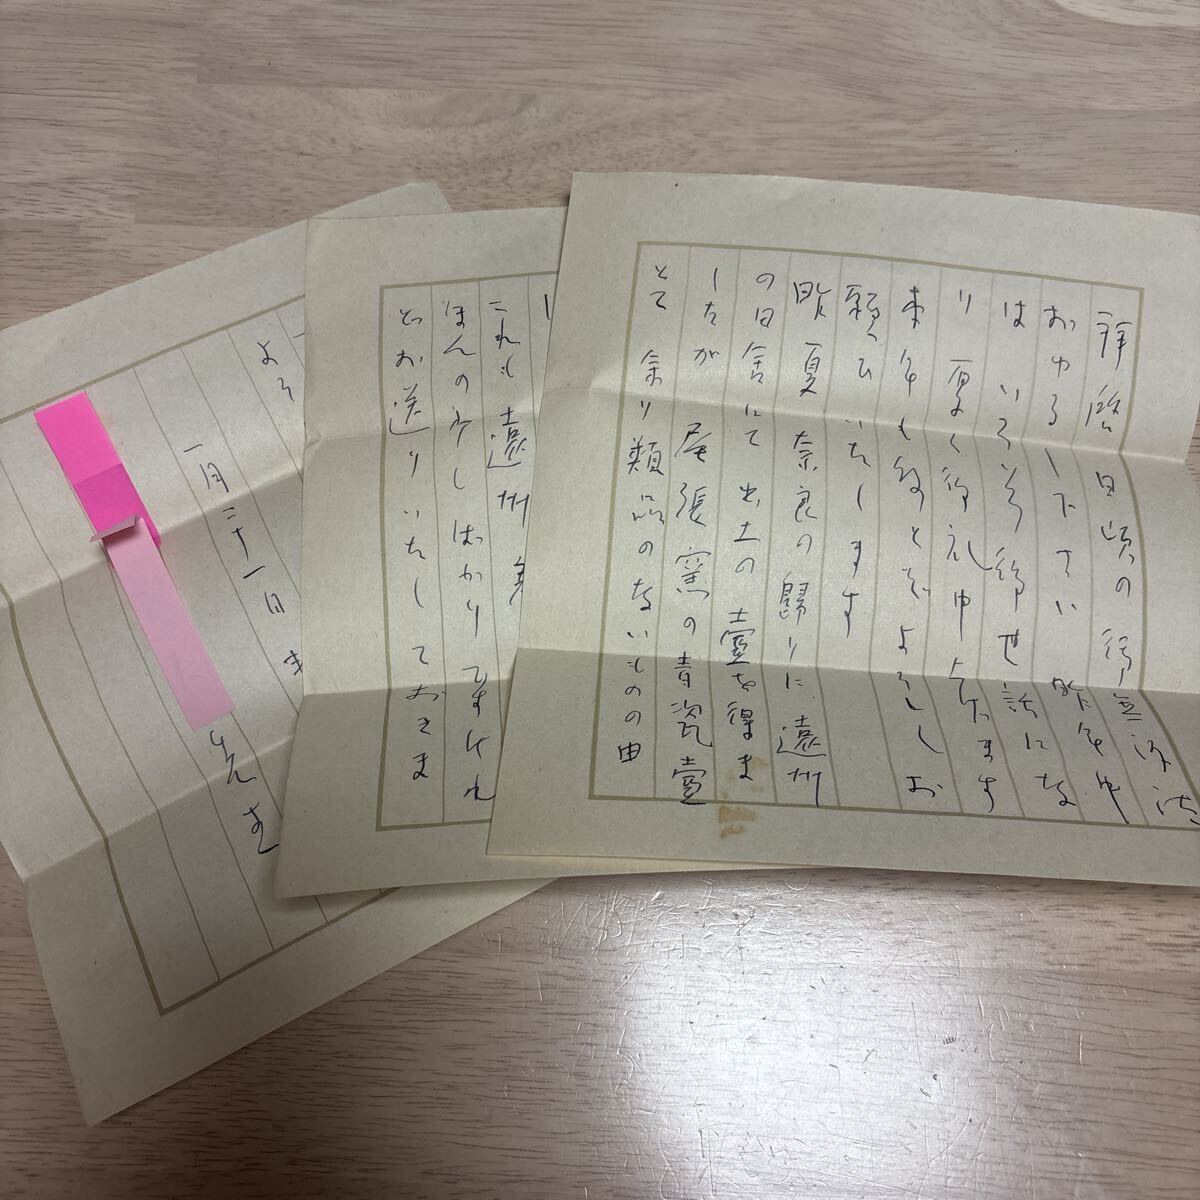 拝啓 日頃の御無沙汰
おゆるし下さい 昨年中
は いろいろ御世話にな
り 厚く御礼申上げます
本年も何とぞよろしくお
願いいたします
昨夏 奈良の歸りに 遠州
の田舎にて 出土の壷を得ま
したが 尾張窯の青瓷壷
とて 余り類品のないものの由
これも 遠州
ほんの少しばかりですけれ
どお送りいたしておきま
よろ
一月二十一日
先生